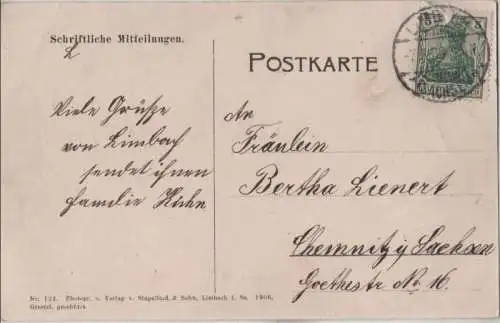 Schriftliche Mitteilungen.
POSTKARTE
Viele Grüsse
von Limbach
sendet ihnen
Familie
An
Fräulein
Bertha Lienert
Chemnitz i/ Sachsen
Goethestr No. 16.
No. 124. Photogr. u. Verlag v. & Sohn, Limbach i. Sa. 1908.
Gesetzl. geschützt.